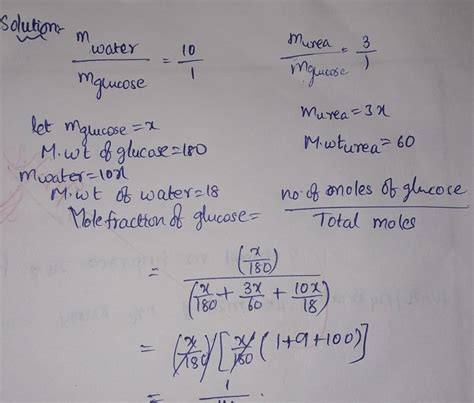 Solution:-
m water / m glucose = 10 / 1
m urea / m glucose = 3 / 1
let m glucose = x
m urea = 3x
M.wt of glucose = 180
M.wt urea = 60
m water = 10x
M.wt of water = 18
Mole fraction of glucose = no. of moles of glucose / Total moles
= (x/180) / (x/180 + 3x/60 + 10x/18)
= (x/180) / [x/180 (1+9+100)]
= 1